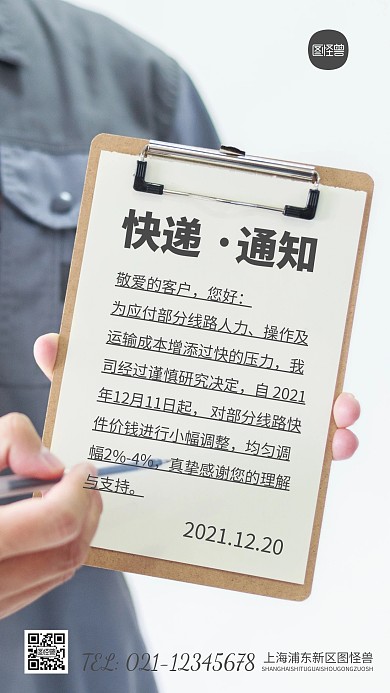 图怪兽
快递·通知
敬爱的客户，您好：
为应付部分线路人力、操作及
运输成本增添过快的压力，我
司经过谨慎研究决定，自 2021
年12月11日起，对部分线路快
件价钱进行小幅调整，均匀调
幅2%-4%，真挚感谢您的理解
与支持。
2021.12.20
TEL: 021-12345678
上海浦东新区图怪兽
SHANGHAISHITUGUAISHOUGONGZUOSH